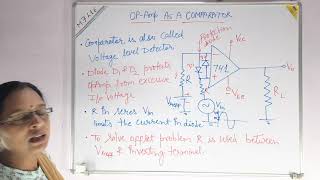 OP-Amp As A COMPARATOR
• Comparator is also called
Voltage level Detector
• Diode D1 & D2 protects
OpAmp from excessive
I/p Voltage
• R in series Vin
limits the current in diode
• To solve offset problem R is used between
Vref & inverting terminal.
Protection
diode
741
+Vcc
-VEE
Vo
RL
R
R
Vin